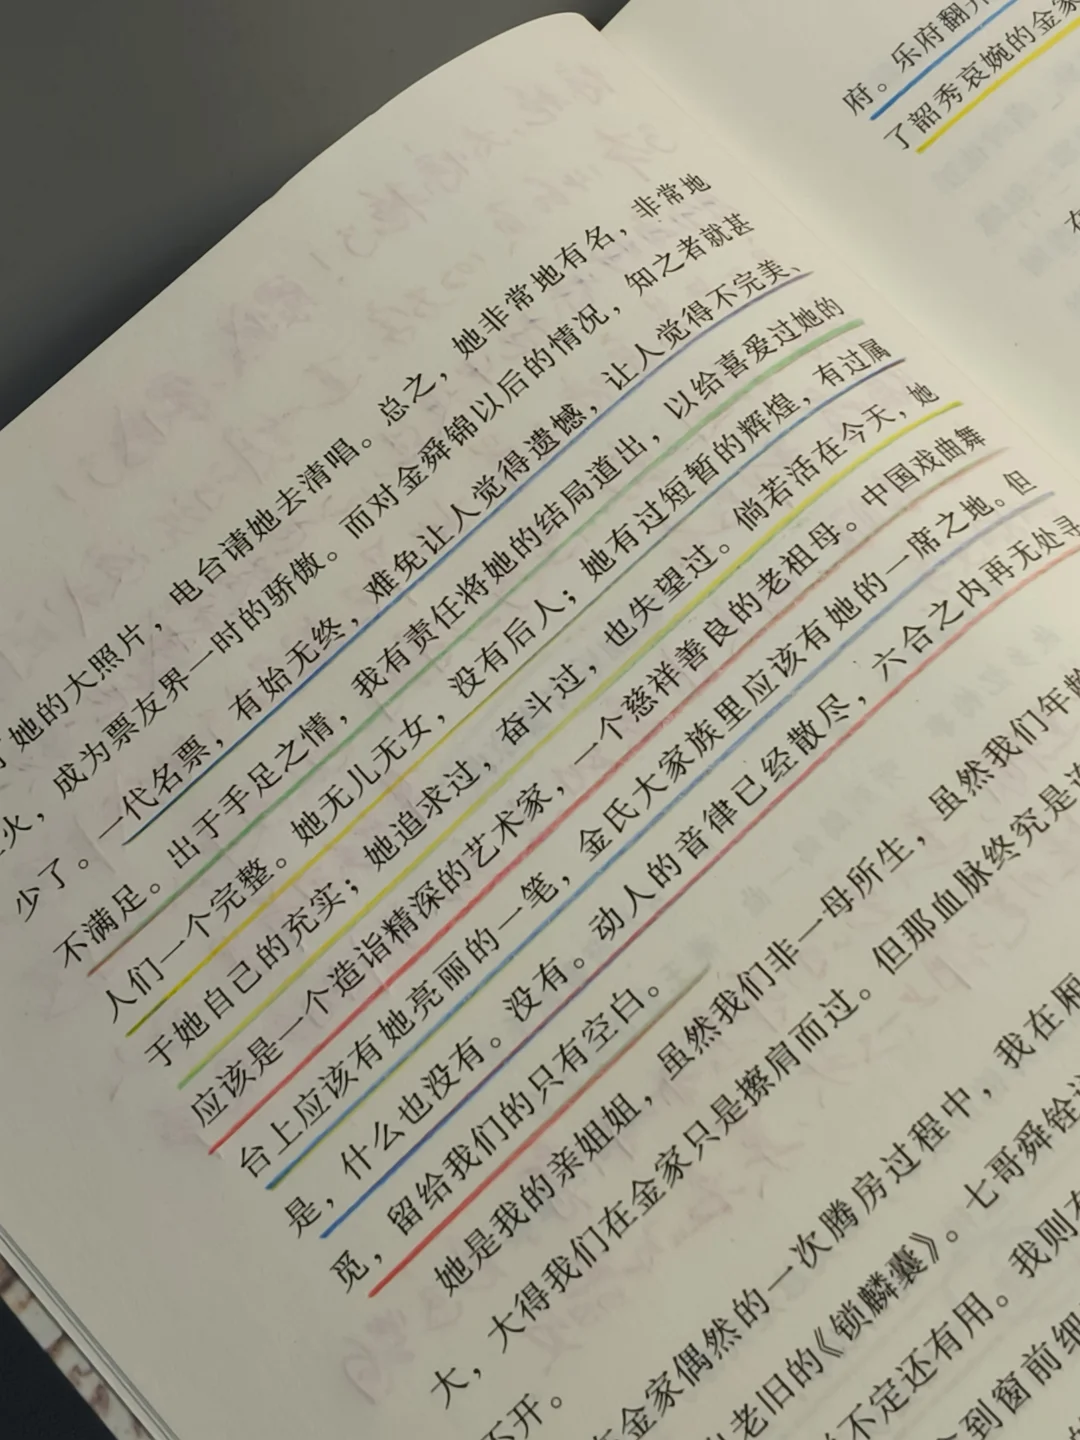 她的大照片，电台请她去清唱。总之，她非常地有名，非常地
火，成为票友界一时的骄傲。而对金舜锦以后的情况，知之者就甚
少了。一代名票，有始无终，难免让人觉得遗憾，让人觉得不完美、
不满足。出于手足之情，我有责任将她的结局道出，以给喜爱过她的
人们一个完整。她无儿无女，没有后人；她有过短暂的辉煌，有过属
于她自己的充实；她追求过，奋斗过，也失望过。倘若活在今天，她
应该是一个造诣精深的艺术家，一个慈祥善良的老祖母。中国戏曲舞
台上应该有她亮丽的一笔，金氏大家族里应该有她的一席之地。但
是，什么也没有。没有。动人的音律已经散尽，六合之内再无处寻
觅，留给我们的只有空白。
她是我的亲姐姐，虽然我们非一母所生，虽然我们年龄
大，大得我们在金家只是擦肩而过。但那血脉终究是
不开。
在金家偶然的一次腾房过程中，我在厢
老旧的《锁麟囊》。七哥舜铨
不定还有用。我则
到窗前细
府。乐府翻
了韶秀哀婉的金家